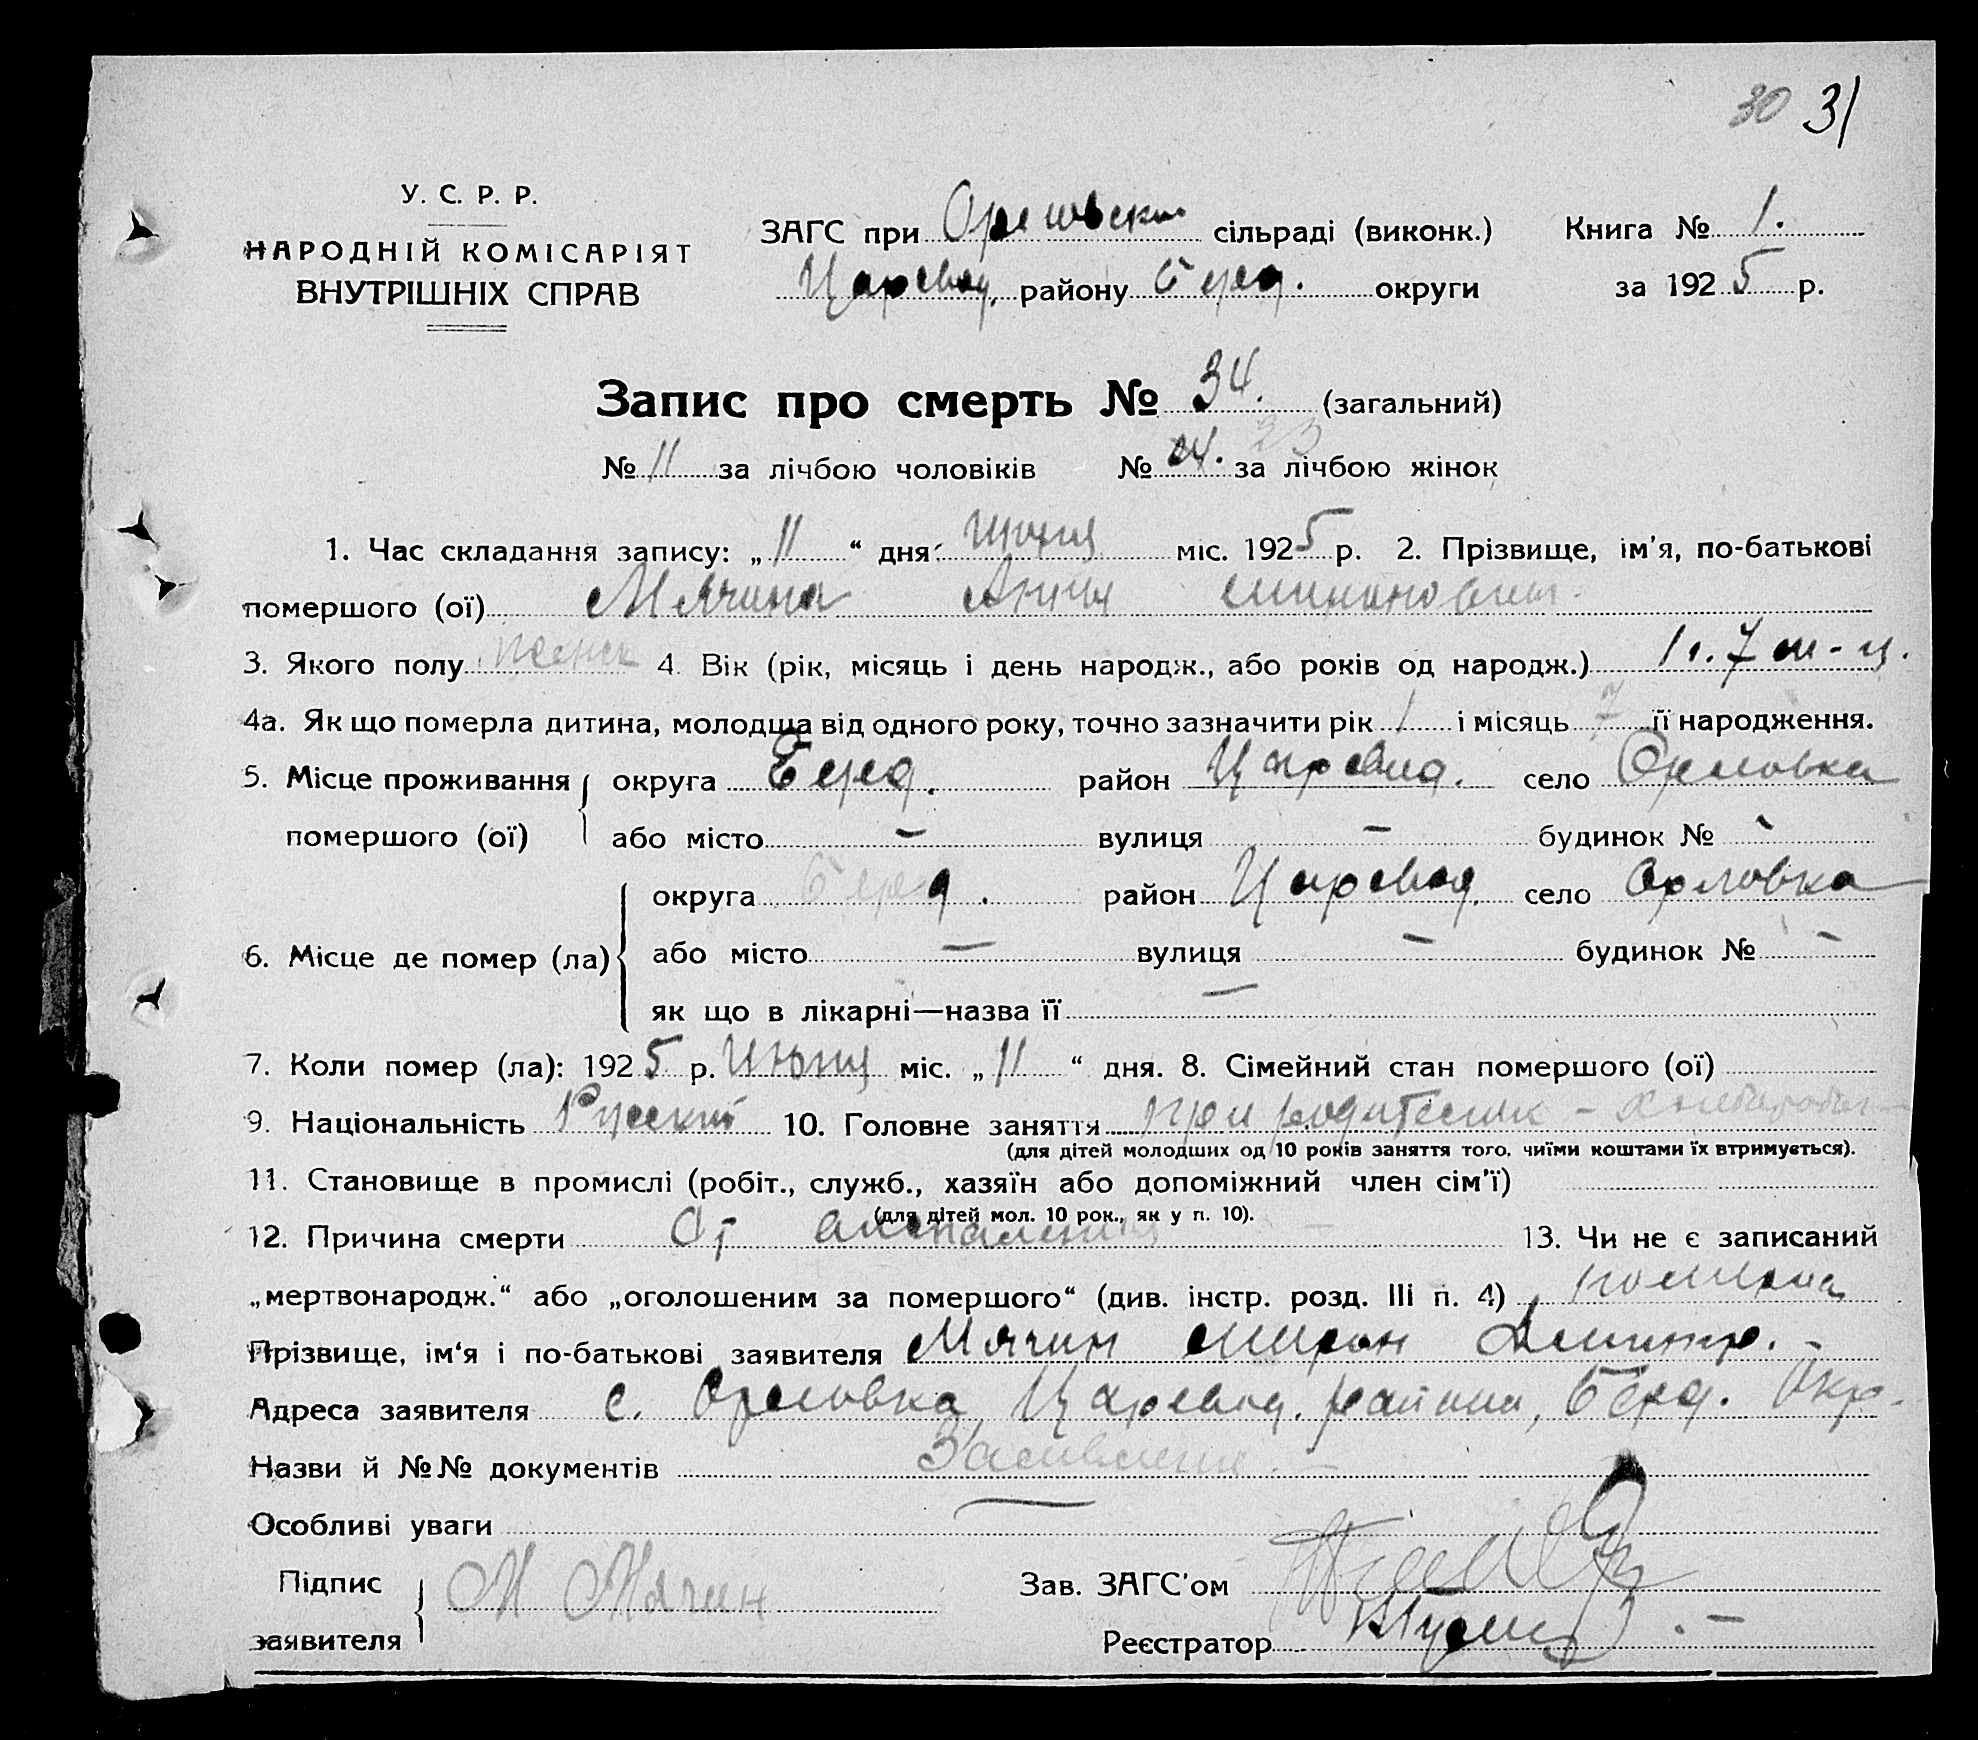 30 31
У. С. Р. Р.
НАРОДНІЙ КОМІСАРІЯТ
ВНУТРІШНІХ СПРАВ
ЗАГС при Орловском сільраді (виконк.) Книга № 1.
Царевод. району Берд. округи за 1925 р.
Запис про смерть № 34. (загальний)
№ 11 за лічбою чоловіків № 24. 23 за лічбою жінок
1. Час складання запису: „11“ дня Июня міс. 1925 р. 2. Прізвище, ім'я, по-батькові
помершого (ої) Мячина Анна Мироновна.
3. Якого полу женск 4. Вік (рік, місяць і день народж., або років од народж.) 1 г. 7 м-ц.
4а. Як що померла дитина, молодша від одного року, точно зазначити рік 1 і місяць 7 її народження.
5. Місце проживання помершого (ої) округа Берд. район Царевод. село Орловка
або місто — вулиця — будинок № -
6. Місце де помер (ла) округа Берд. район Царевод. село Орловка
або місто — вулиця — будинок № —
як що в лікарні—назва її —
7. Коли помер (ла): 1925 р. Июня міс. „11“ дня. 8. Сімейний стан помершого (ої)
9. Національність Русский 10. Головне заняття при родителях - хлебороб
(для дітей молодших од 10 років заняття того, чиїми коштами їх втримується).
11. Становище в промислі (робіт., служб., хазяїн або допоміжний член сім'ї)
(для дітей мол. 10 рок., як у п. 10).
12. Причина смерти От воспаления — 13. Чи не є записаний
„мертвонародж.“ або „оголошеним за помершого“ (див. інстр. розд. III п. 4)
Прізвище, ім'я і по-батькові заявителя Мячин Мирон Дмитр. -
Адреса заявителя с. Орловка, Царевод. района, Берд. Окр.
Назви й №№ документів Заявление. —
Особливі уваги
Підпис заявителя М Мячин
Зав. ЗАГС'ом
Реєстратор